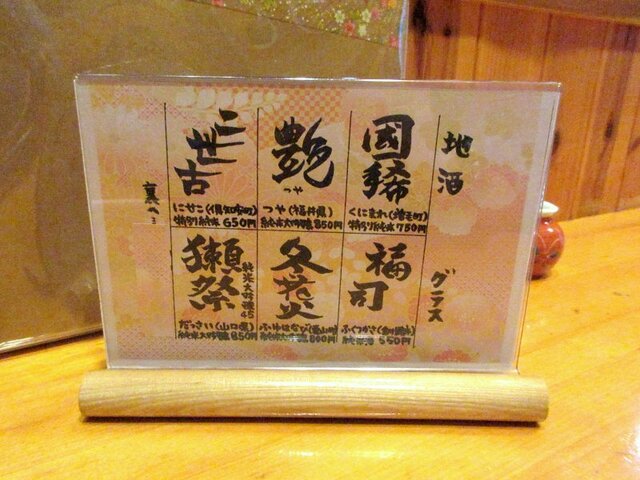 地酒
グラス
國稀
くにまれ(増毛町)
特別純米 750円
艶
つや
つや(福井県)
純米大吟醸 850円
二世古
にせこ(倶知安町)
特別純米 650円
福司
ふくつかさ(釧路市)
純米酒 550円
冬花火
ふゆはなび(富山県)
純米大吟醸 800円
獺祭
純米大吟醸45
だっさい(山口県)
純米大吟醸 850円
裏へ